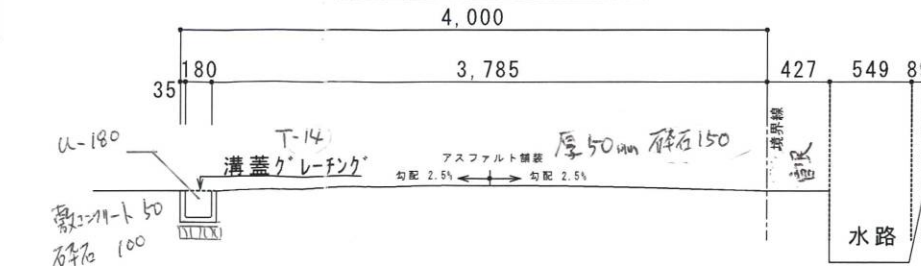 4,000
180
3,785
427
549
35
U-180
T-14
溝蓋グレーチング
アスファルト舗装
厚50mm 砕石150
境界線
勾配 2.5%
勾配 2.5%
敷コンクリート 50
砕石 100
水路